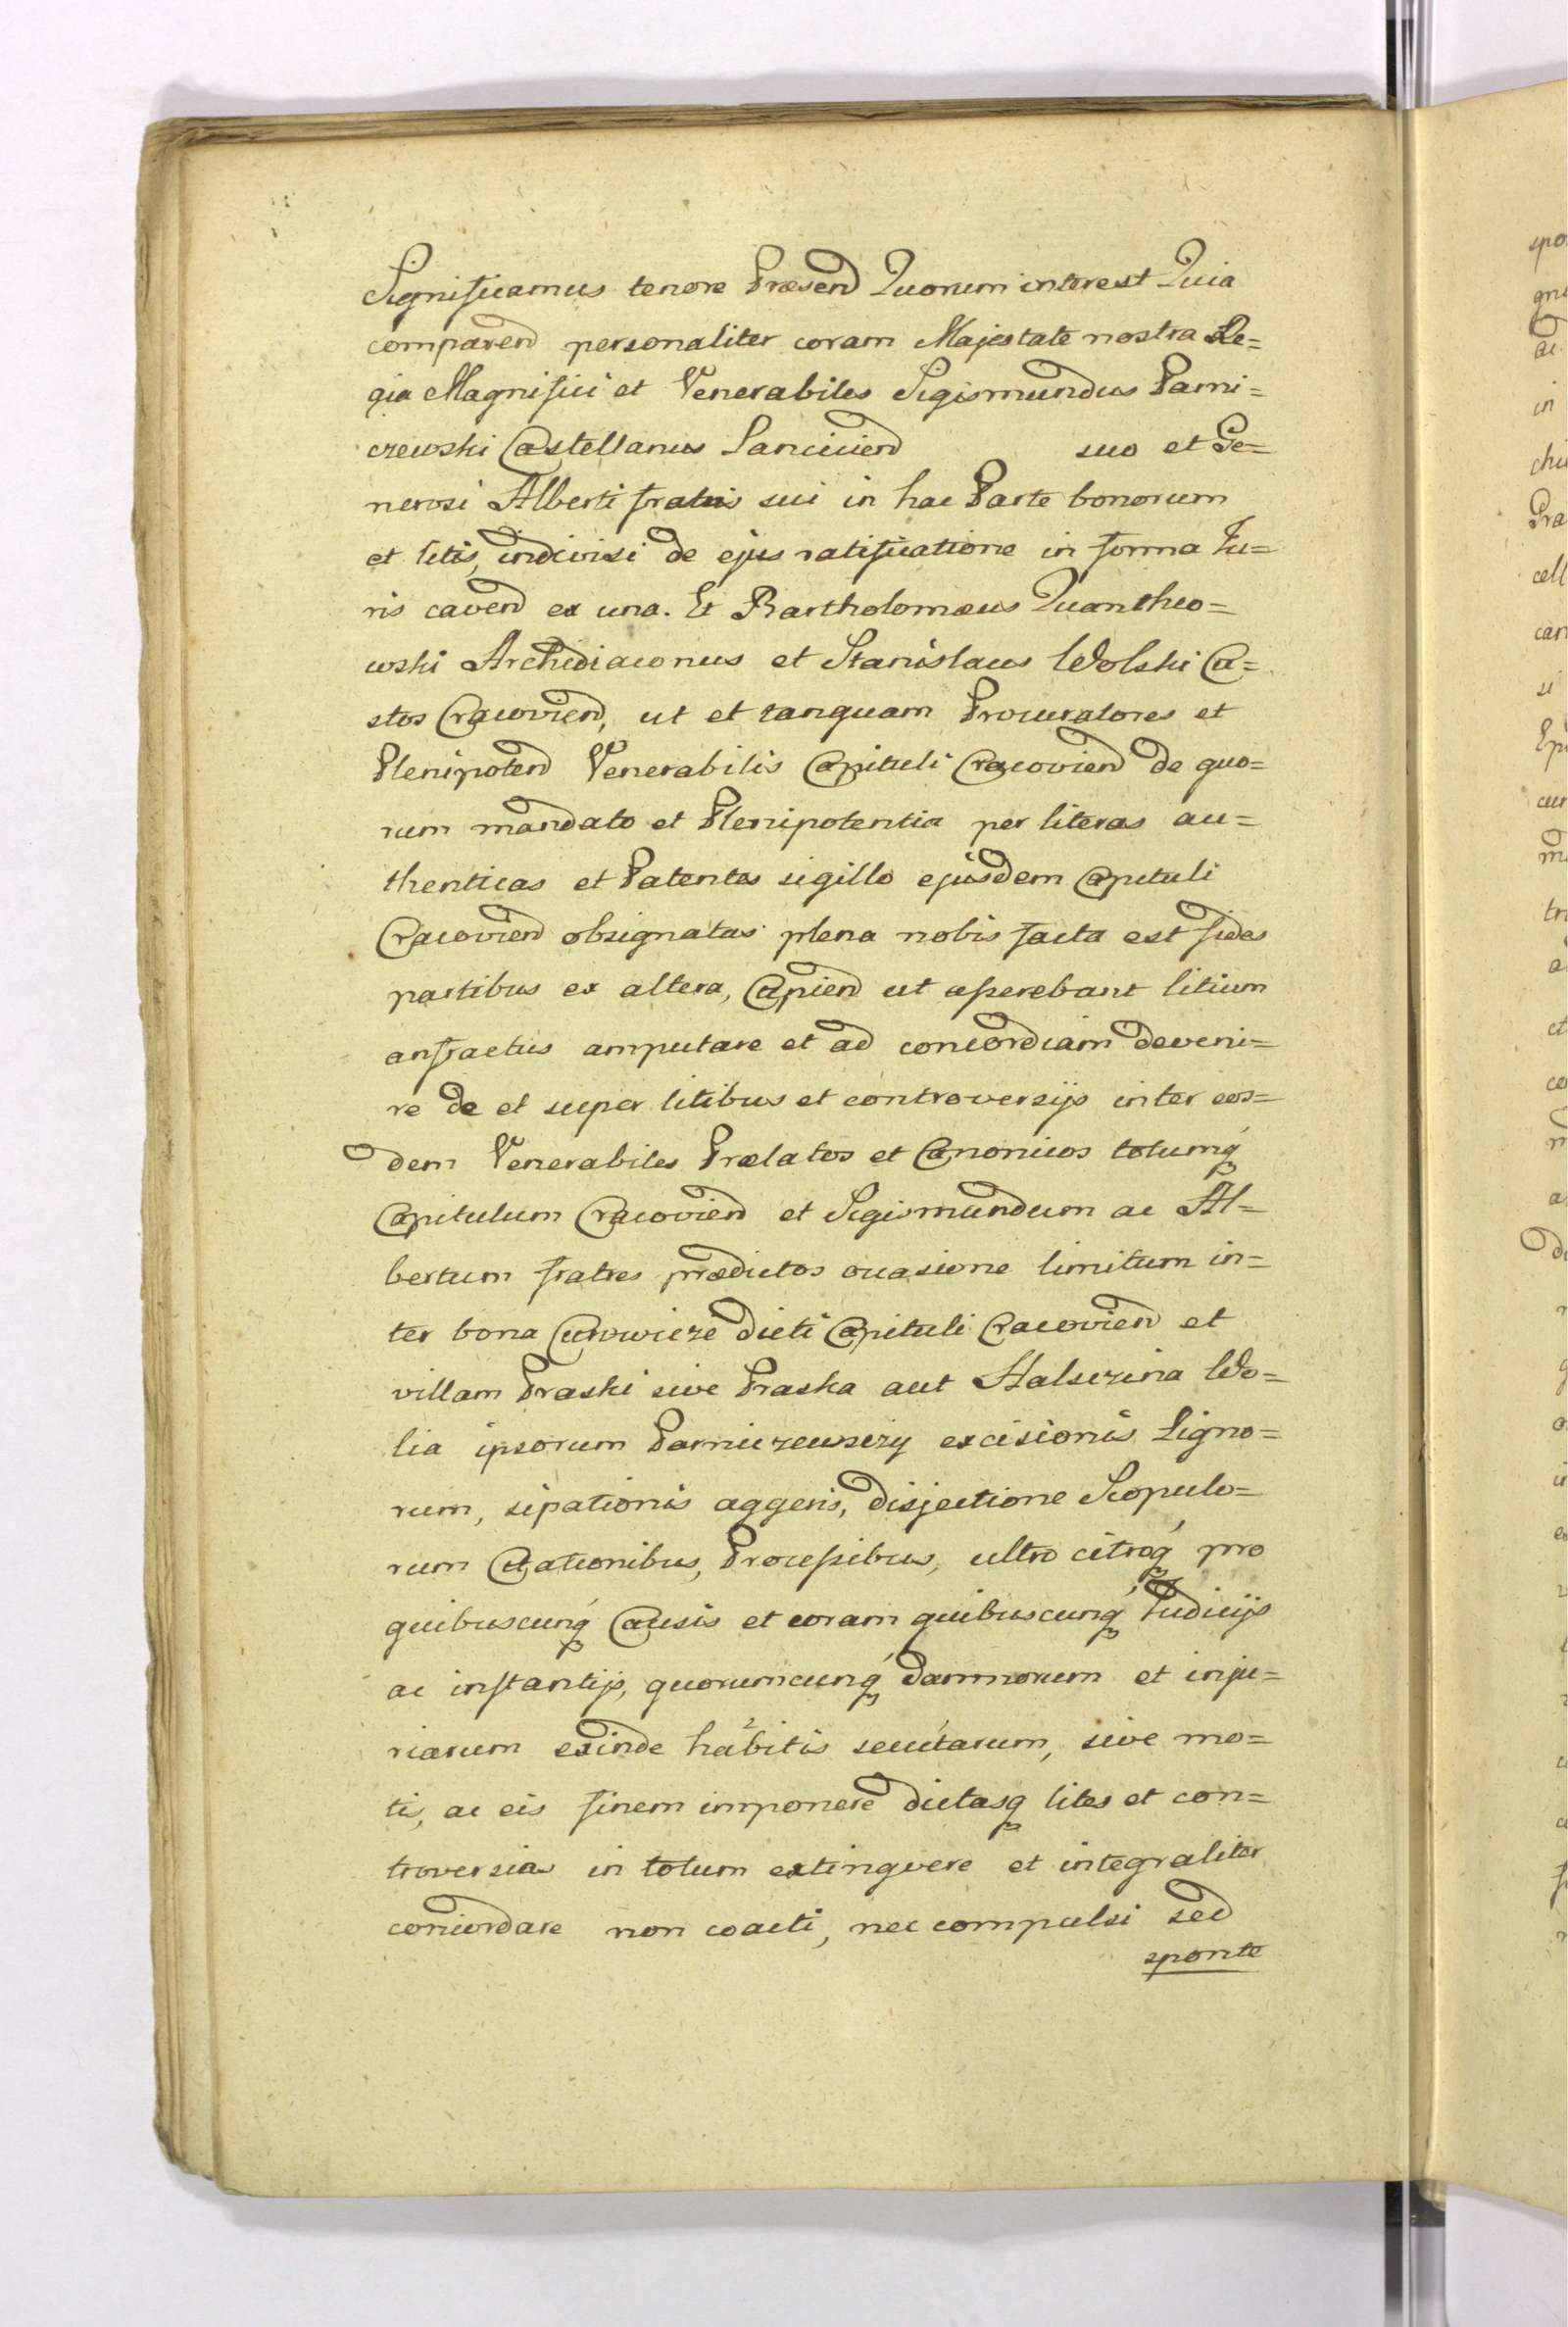 Significamus tenore Præsend Quorum interest Quia
comparend personaliter coram Majestate nostra Re=
gia Magnifici et Venerabiles Sigismundus Parni=
czewski Castellanus Lanciciend suo et Ge=
nerosi Alberti fratris sui in hac Parte bonorum
et litis, indivisi de ejus ratificatione in forma Iu=
ris cavend ex una. Et Bartholomæus Quantheo=
wski Archidiaconus et Stanislaus Wolski Cu=
stos Cracoviend, ut et tanquam Procuratores et
Plenipotend Venerabilis Capituli Cracoviend de quo=
rum mandato et Plenipotentia per literas au=
thenticas et Patentes sigillo ejusdem Capituli
Cracoviend obsignatas plena nobis facta est fides
partibus ex altera, Cupiend ut asserebant litium
anfractus amputare et ad concordiam deveni=
re de et super litibus et controversijs inter eos=
dem Venerabiles Prælatos et Canonicos totumq́
Capitulum Cracoviend et Sigismundum ac Al=
bertum fratres prædictos occasione limitum in=
ter bona Curowicze dicti Capituli Cracoviend et
villam Praski sive Praska aut Halsczina Wo=
lia ipsorum Parniczewsczy excisionis Ligno=
rum, sipationis aggeris, disjectione Scopulo=
rum Citationibus, Processibus, ultro citroq́ pro
quibuscunq́ Causis et coram quibuscunq́ Iudicijs
ac instantijs, quorumcunq́ damnorum et inju=
riarum exinde habitis secutarum, sive mo=
tis, ac eis finem imponere dictasq lites et con=
troversias in totum extinguere et integraliter
concordare non coacti, nec compulsi sed
sponte